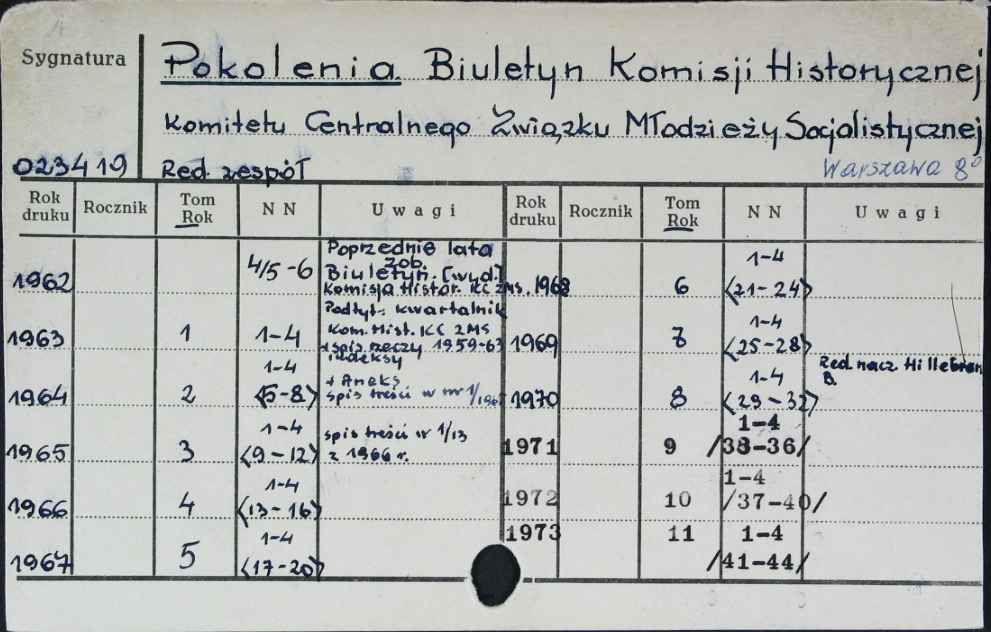 Sygnatura
Pokolenia. Biuletyn Komisji Historycznej
Komitetu Centralnego Związku Młodzieży Socjalistycznej
023419 Red. zespół Warszawa 8°
Rok druku Rocznik Tom Rok NN Uwagi Rok druku Rocznik Tom Rok NN Uwagi
1962 4/5-6
Poprzednie lata
zob.
Biuletyn. [wyd.]
Komisja Histor. KC ZMS.
1963 1 1-4
Podtyt.: kwartalnik
Kom. Hist. KC ZMS
+ spis rzeczy 1959-63
indeksy
1964 2 1-4
<5-8>
+ Aneks
spis treści w nr 1/
1965 3 1-4
<9-12>
spis treści w 1/13
z 1966 r.
1966 4 1-4
<13-16>
1967 5 1-4
<17-20>
1968 6 1-4
<21-24>
1969 7 1-4
<25-28>
1970 8 1-4
<29-32>
Red nacz Hillebran
B.
1971 9 1-4
/33-36/
1972 10 1-4
/37-40/
1973 11 1-4
/41-44/